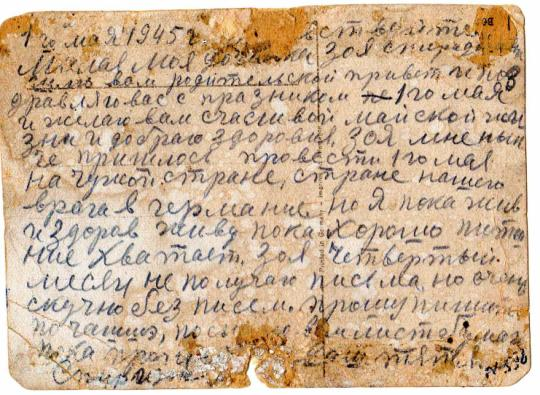 1 го мая 1945 г
Милая моя дочька Зоя
шлю вам родительской привет и поз
дравляю вас с празником 1 го мая
и желаю вам счасливой майской жи
зни и доброго здоровия, Зоя мне нын
че пришлось провести 1 го мая
на чужой стране, стране нашего
врага в германие но я пока жив
и здоров живу пока хорошо пита
ние хватает, Зоя четвертый
месяц не получаю писема, но очень
скучно без писем. прошу пишите
по чащще, вам листа бумаги
пока